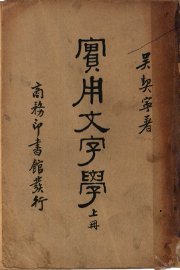 吳契寧著
實用文字學
上冊
商務印書館發行